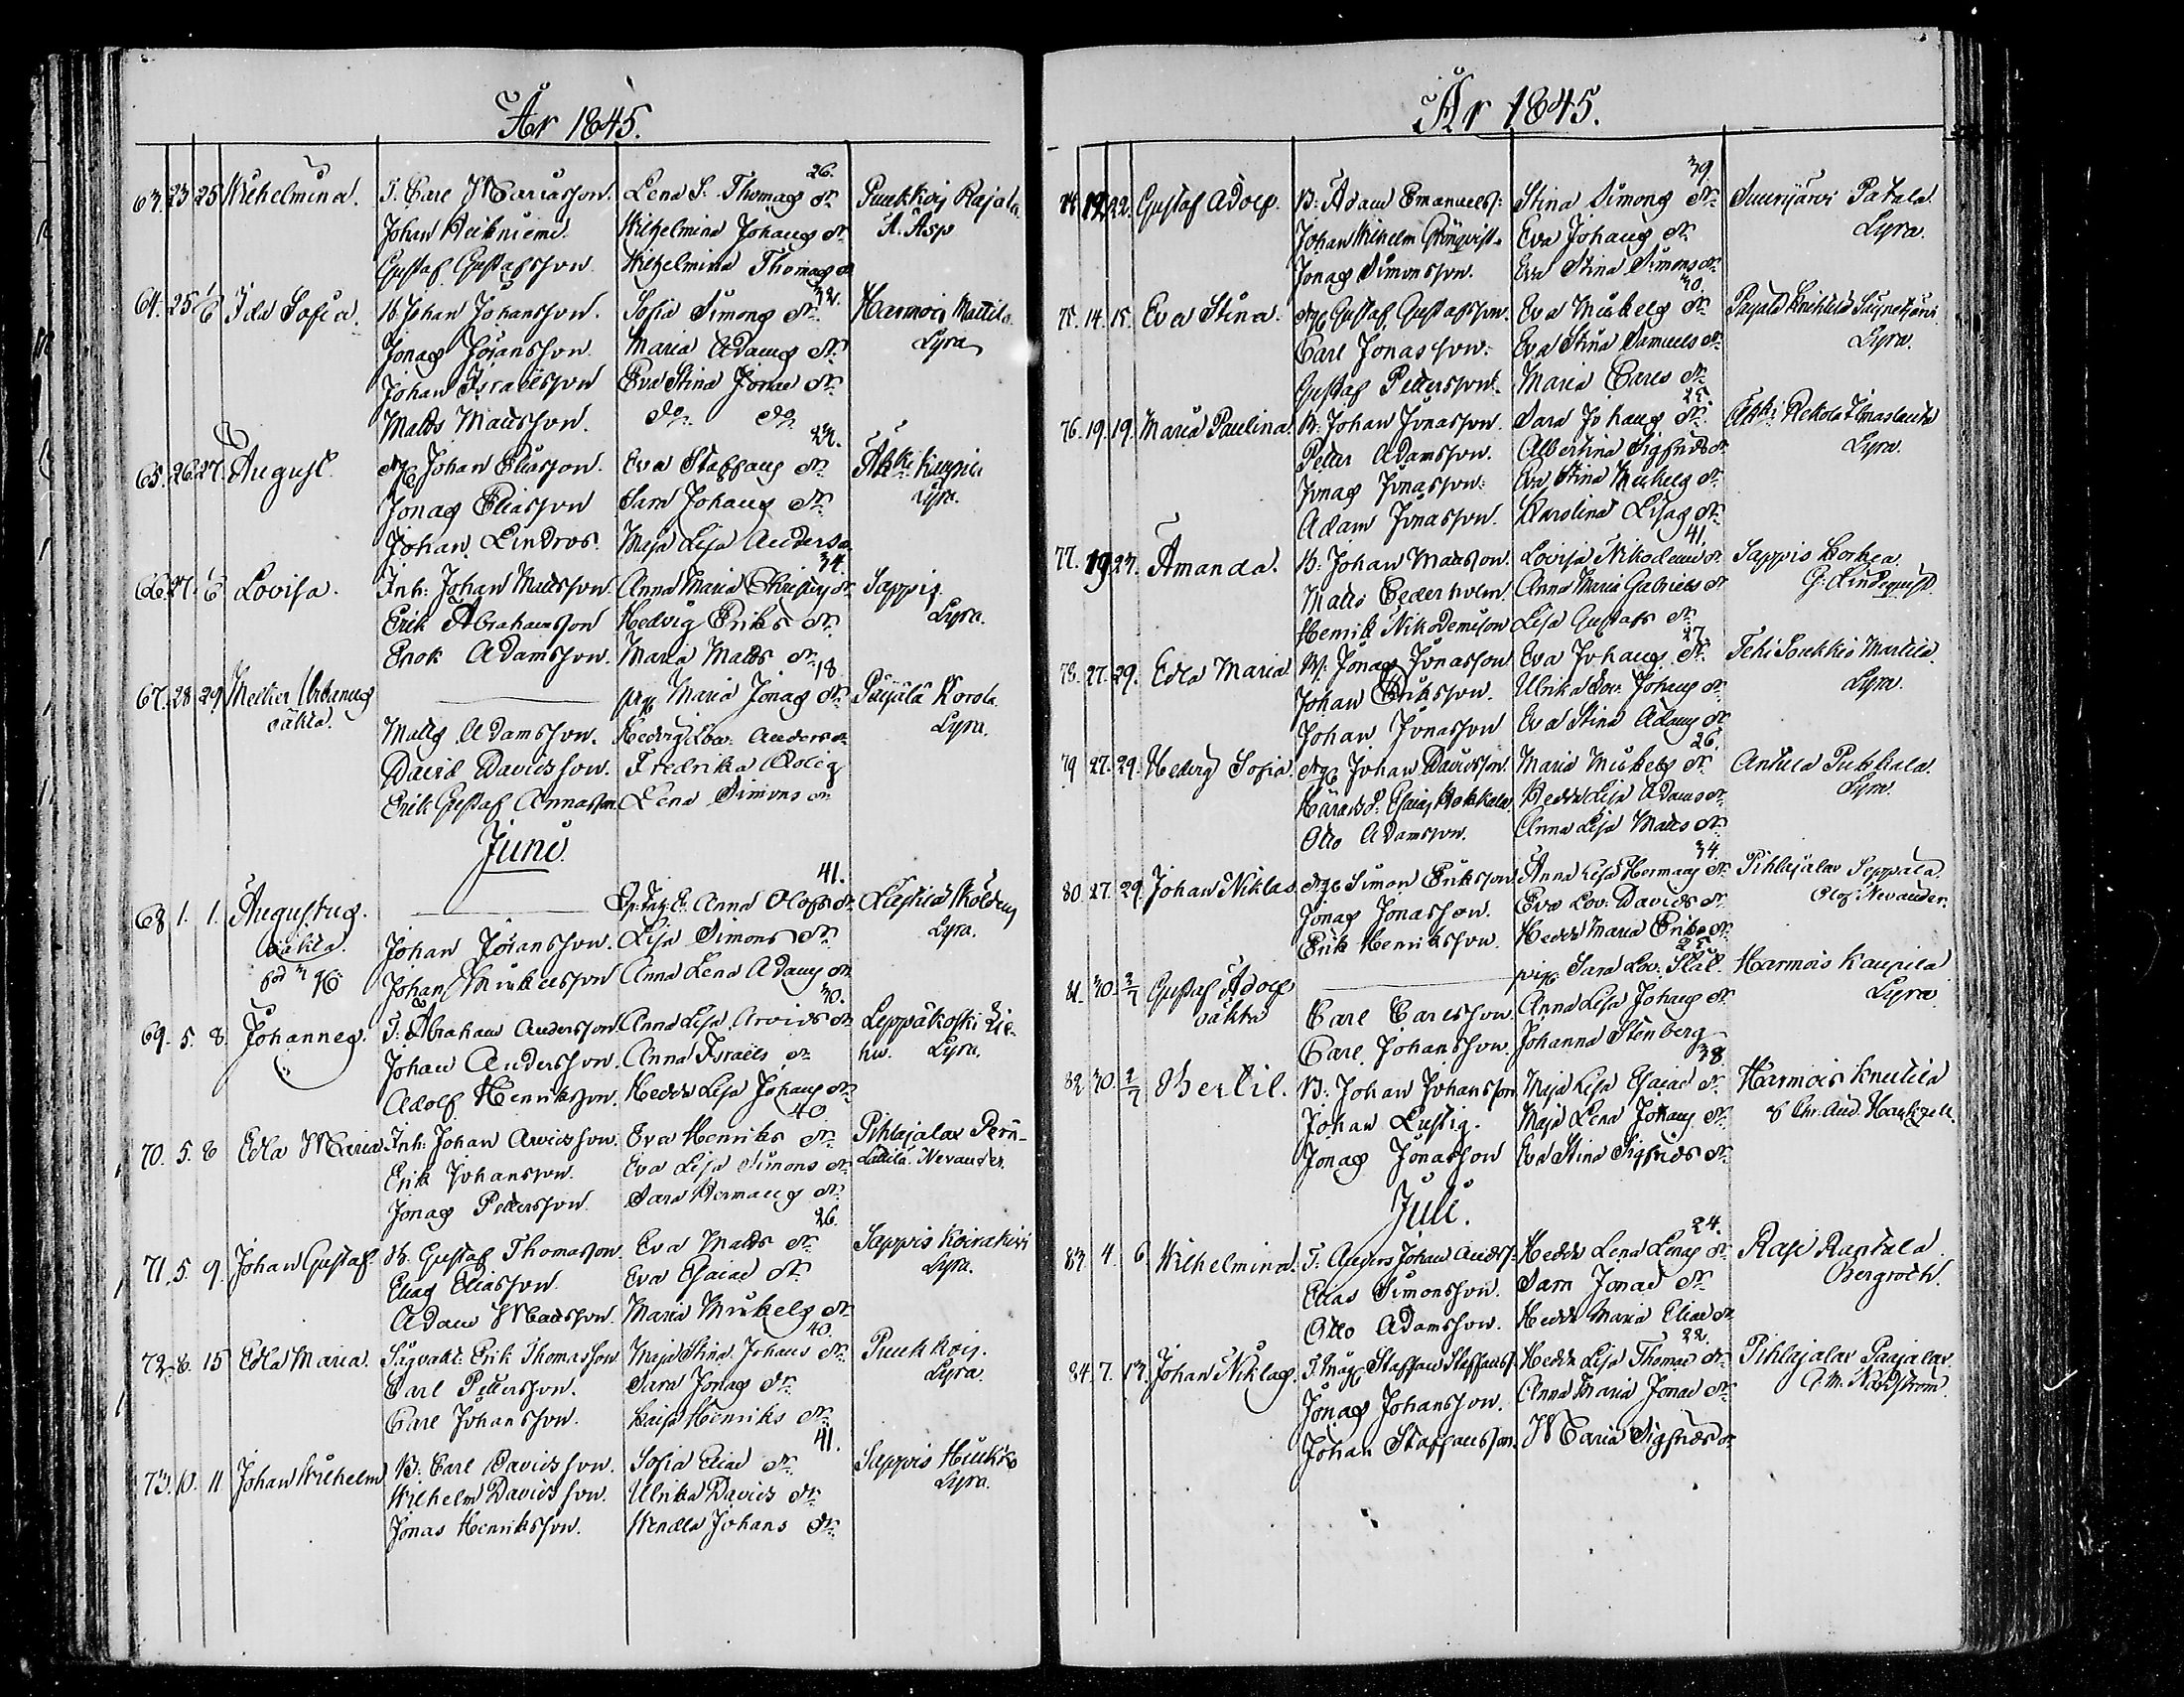 År 1845.
63. 23 25 Wilhelmina. T. Carl Mariasson. Lena S. Thomas dr 26. Puukkois Rajala
Johan Heikniemi. Wilhelmina Johans dr A. Asp
Gustaf Gustafsson. Wilhelmina Thomas dr
64. 25 1/6 Ida Sofia. B. Johan Johansson. Sofia Simons dr 32. Harmois Mattila
Jonas Jöransson. Maria Adams dr Lyra
Johan Israelsson Eva Stina Jonae dr
Matts Mattsson. do do
65. 26. 27. August. Johan Eliasson. Eva Staffans dr 23.
Jonas Eliasson Sara Johans dr Lyra.
Johan Lindros. Maja Lisa Anders dr
66. 27. 1/6 Lovisa. Inh: Johan Mattsson. Anna Maria dr 34. Sappis
Erik Abrahamsson Hedvig Eriks dr Lyra.
Enok Adamsson. Maria Matts dr
67. 28 29 Urbanus pig. Maria Jonas dr 18 Päijälä Korola
oäkta. Matts Adamsson. Hedvig Lov: Anders dr Lyra.
David Davidsson. Fredrika Rolig
Erik Gustaf Annasson Lena Simons dr
Juni.
68 1. 1. Augustus. Anna Olofs dr 41.
oäkta. Johan Jöransson. Lisa Simons dr Lyra.
Johan Mickelsson Anna Lena Adams dr
69. 5. 8. Johannes. T: Abraham Andersson. Anna Lisa Arvids dr 30. Leppäkoski
Johan Andersson. Anna Israels dr Lyra.
Adolf Henriksson. Hedda Lisa Johans dr
70. 5. 8 Edla Maria Inh: Johan Arvidsson. Eva Henriks dr 40 Pihlajalax
Erik Johansson. Eva Lisa Simons dr Nevander.
Jonas Pettersson. Sara Hermans dr
71. 5. 9. Johan Gustaf B. Gustaf Thomasson Eva Matts dr 26. Sappis Koirakivi
Elias Eliasson. Eva Esaiae dr Lyra.
Adam Mattsson. Maria Mickels dr
72. 8. 15 Edla Maria. Sågvakt: Erik Thomasson Maja Stina Johans dr 40. Puukkois.
Carl Pettersson. Sara Jonas dr Lyra.
Carl Johansson. Caisa Henriks dr
73. 10. 11 Johan Wilhelm B: Carl Davidsson. Sofia Eliae dr 41. Sappis
Wilhelm Davidsson. Ulrika Davids dr Lyra.
Jonas Henriksson. Wendla Johans dr
År 1845.
12 22. Gustaf Adolf. B: Adam Emanuels: Stina Simons dr 39. Suurijärvi Patala
Johan Wilhelm Grönqvist. Eva Johans dr Lyra.
Jonas Simonsson. Eva Stina Simons dr
75. 14. 15. Eva Stina. Gustaf Gustafsson. Eva Mickels dr 30.
Carl Jonasson. Eva Stina Samuels dr Lyra.
Gustaf Pettersson. Maria Carls dr
76. 19. 19. Maria Paulina. B: Johan Jonasson. Sara Johans dr 25.
Petter Adamsson. Albertina Sigfrids dr Lyra.
Jonas Jonasson. Eva Stina Mickels dr
Adam Jonasson. Karolina Lisas dr
77. 19 23. Amanda. B. Johan Mattsson. Lovisa Nikodemi dr 41. Sappis Korkea
Matts Cederholm. Anna Maria Gabriels dr G: Lindequist
Henrik Nikodemisson Lisa Gustafs dr
78. 27. 29. Edla Maria B: Jonas Jonasson Eva Johans dr 27. Tehi Soukkio Marttila
Johan Eriksson. Ulrika Lov: Johans dr Lyra.
Johan Jonasson Eva Stina Adams dr
79 27. 29. Hedvig Sofia. Johan Davidsson. Maria Mickels dr 26. Anttila Pukkala.
Esaias Hokkola Hedda Lisa Adams dr Lyra.
Otto Adamsson. Anna Lisa Matts dr
80. 27. 29. Johan Niklas. Simon Eriksson Anna Lisa Hermans dr 34. Pihlajalax Seppälä.
Jonas Jonasson. Eva Lov: Davids dr Olof Nevander.
Erik Henriksson. Hedda Maria Eriks dr
81. 30. 2/7 Gustaf Adolf pig. Sara Lov: Stål. 25 Harmois Kaupila
oäkta Carl Carlsson Anna Lisa Johans dr Lyra
Carl Johansson. Johanna Stenberg
82. 30. 2/7 Bertil. B: Johan Johansson Maja Lisa Esaiae dr 38. Harmois Knutila
Johan Lustig. Maja Lena Johans dr
Jonas Jonasson Eva Stina Sigfrids dr
Juli.
83. 4. 6 Wilhelmina. T. Anders Johan Anders: Hedda Lena Lenas dr 24. Rasi Rantala
Elias Simonsson. Sara Jonae dr Bergroth.
Otto Adamsson. Hedda Maria Eliae dr
84. 7. 13. Johan Niklas. Staffan Staffans: Hedda Lisa Thomae dr 22. Pihlajalax Paajalax
Jonas Johansson. Anna Maria Jonae dr A. M. Nordström.
Johan Staffansson. Maria Sigfrids dr